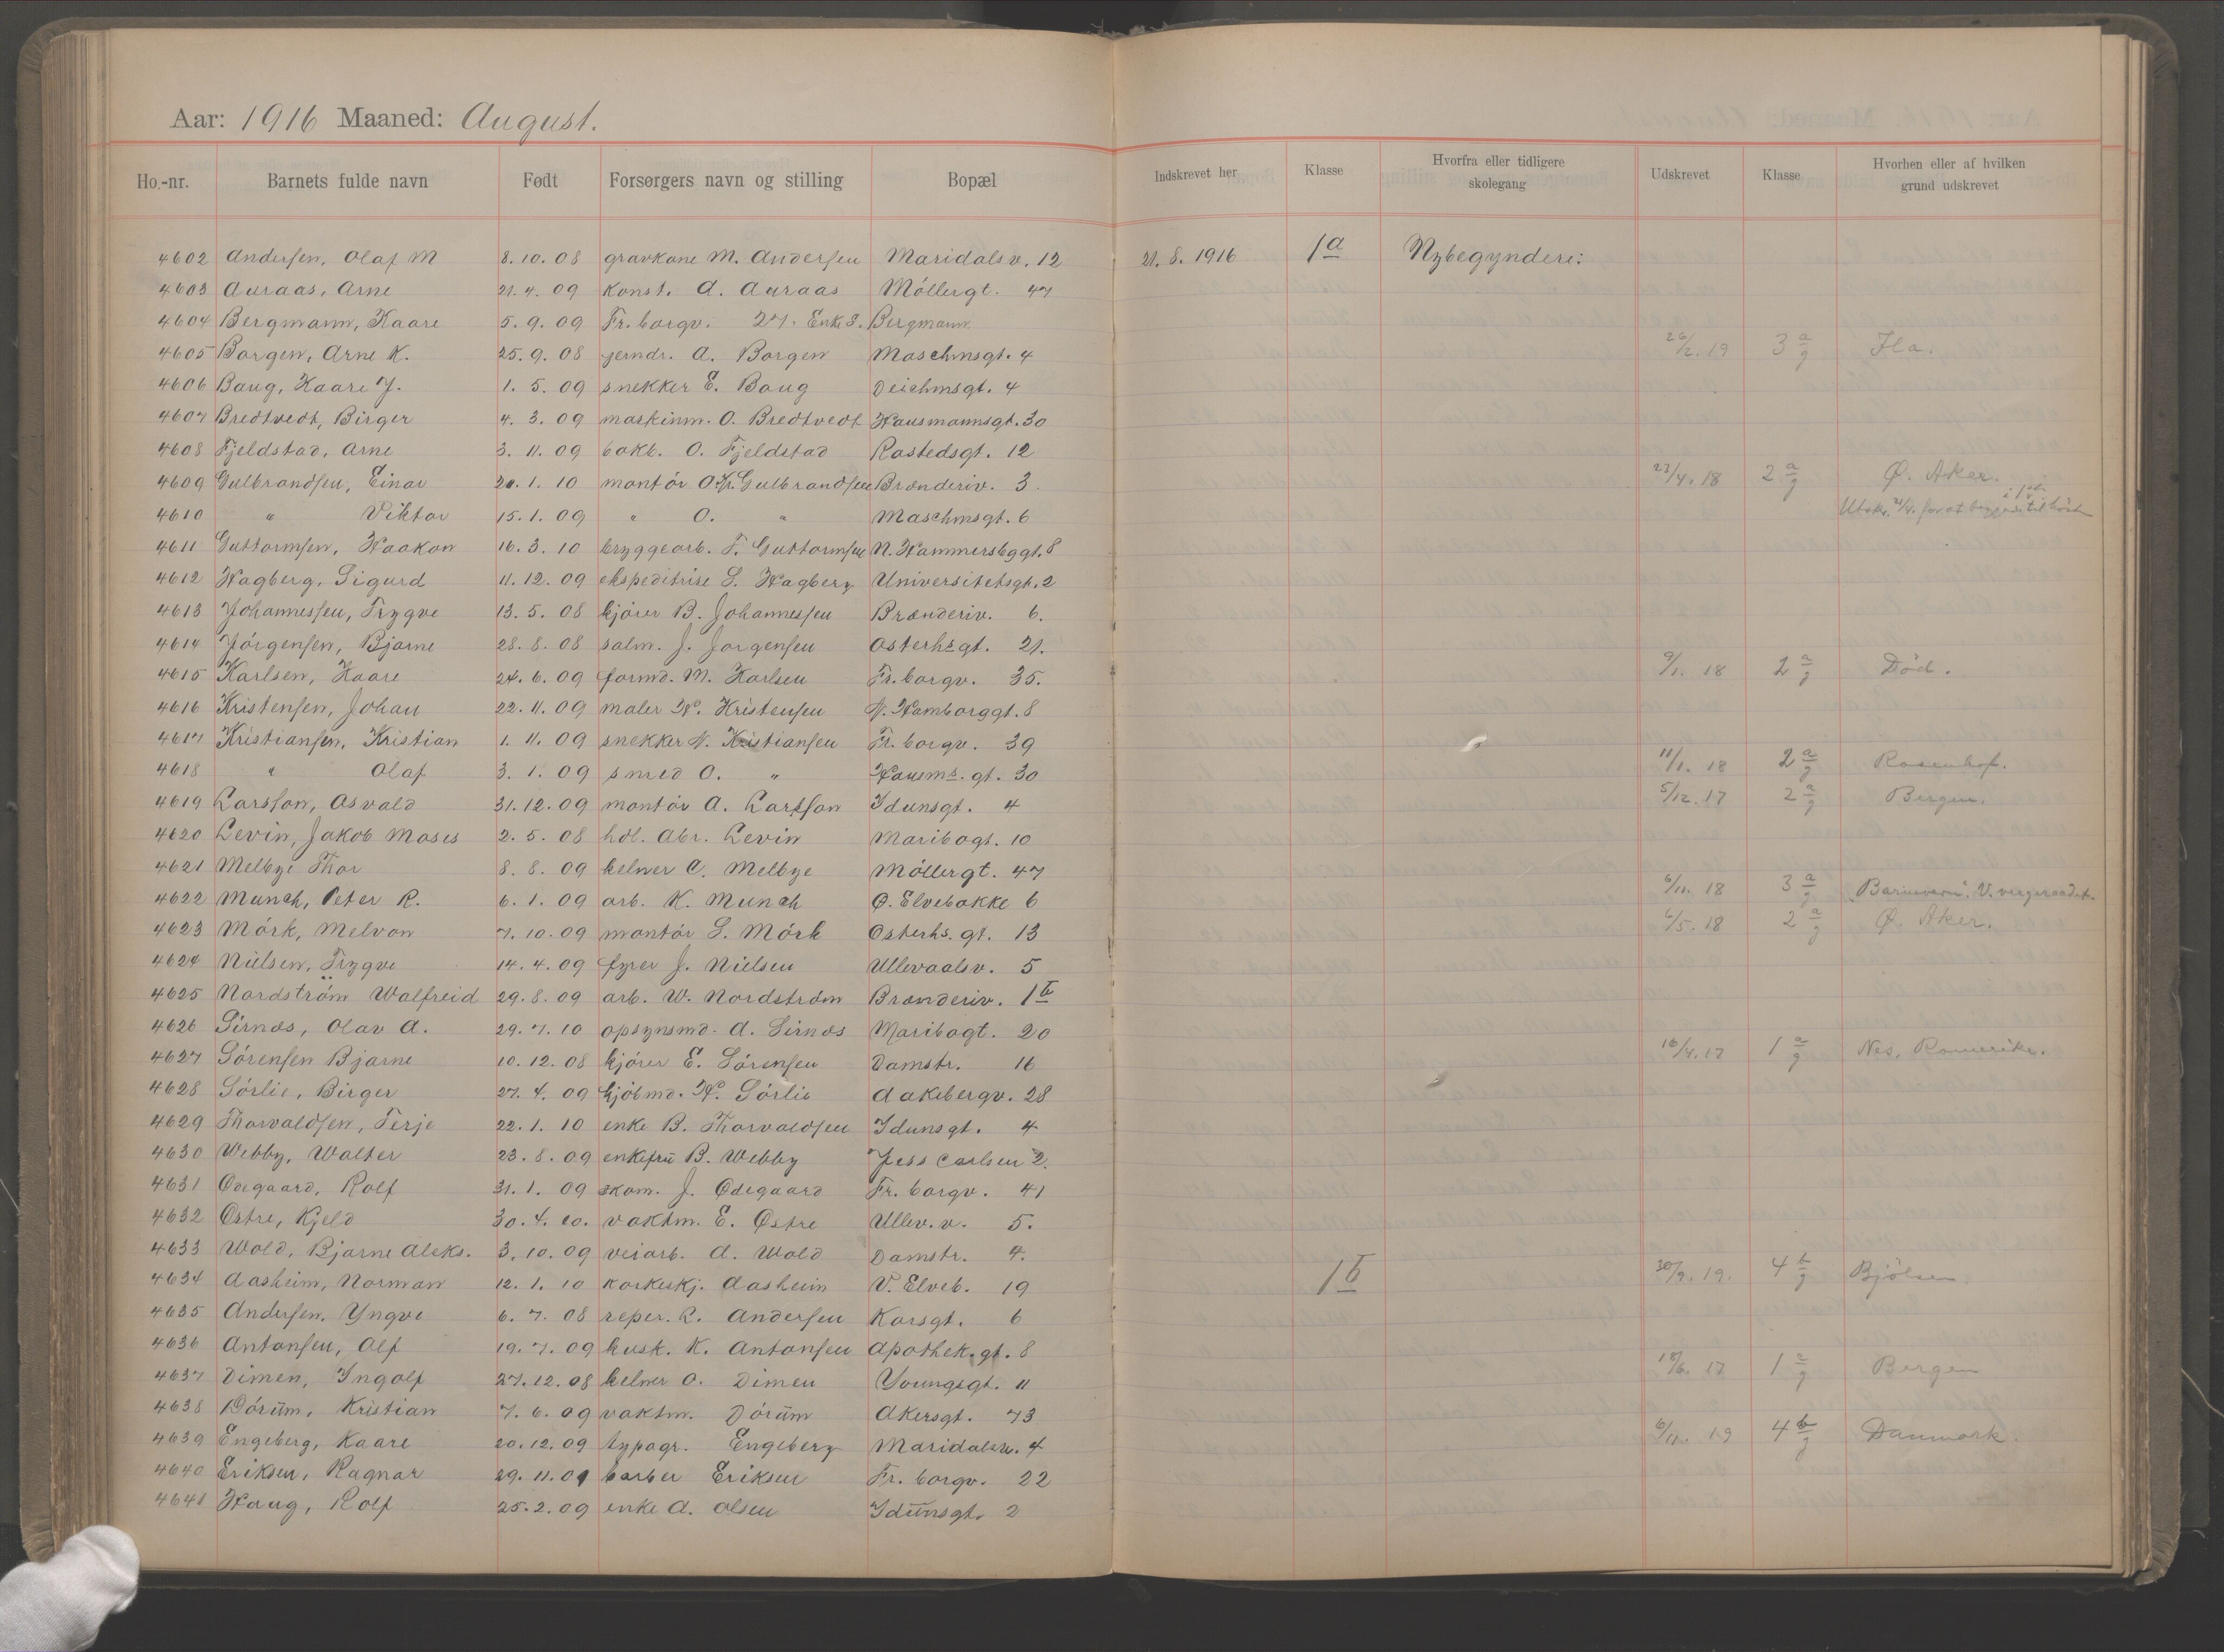 Aar: 1916 Maaned: August.
Ho.-nr. Barnets fulde navn Født Forsørgers navn og stilling Bopæl Indskrevet her Klasse Hvorfra eller tidligere skolegang Udskrevet Klasse Hvorhen eller af hvilken grund udskrevet
4602 Andersen, Olaf M 8.10.08 gravkone M. Andersen Maridalsv. 12 21.8.1916 1a Nybegyndere:
4603 Auraas, Arne 21.4.09 konst. A. Auraas Möllergt. 47
4604 Bergmann, Kaare 5.9.09 Fr.borgv. 27. Enke S. Bergmann
4605 Borgen, Arne K. 25.9.08 jerndr. A. Borgen Maschmsgt. 4 26/2.19 3 a/g Ila.
4606 Baug, Kaare J. 1.5.09 snekker E. Baug Deichmsgt. 4
4607 Bredtvedt, Birger 4.3.09 maskinm. O. Bredtvedt Hausmannsgt. 30
4608 Fjeldstad, Arne 3.11.09 bokb. O. Fjeldstad Rostedsgt. 12
4609 Gulbrandsen, Einar 20.1.10 montör O.Kr. Gulbrandsen Brænderiv. 3. 23/4.18 2 a/g Ø. Aker.
4610 " Viktor 15.1.09 " O. " Maschmsgt. 6 Utskr. 21/4. for at begynne i 1ste til høsten
4611 Guttormsen, Haakon 16.3.10 bryggearb. F. Guttormsen N. Hammersbggt. 8
4612 Hagberg, Sigurd 11.12.09 ekspeditrise S. Hagberg Universitetsgt. 2
4613 Johannessen, Trygve 13.5.08 kjörer B. Johannessen Brænderiv. 6.
4614 Jörgensen, Bjarne 28.8.08 salm. J. Jorgensen Osterhsgt. 21.
4615 Karlsen, Kaare 24.6.09 formd. M. Karlsen Fr.borgv. 35. 9/1.18 2 a/g Död.
4616 Kristensen, Johan 22.11.09 maler H. Kristensen N. Hamborggt. 8
4617 Kristiansen, Kristian 1.11.09 snekker N. Kristiansen Fr.borgv. 39
4618 " Olaf 3.1.09 smed O. " Hausms.gt. 30 11/1.18 2 a/g Rosenhof.
4619 Larsson, Osvald 31.12.09 montör A. Larsson Idunsgt. 4 5/12.17 2 a/g Bergen.
4620 Levin, Jakob Moses 2.5.08 hdl. Abr. Levin Maribogt. 10
4621 Melbye Thor 8.8.09 kelner C. Melbye Möllergt. 47
4622 Munch, Peter R. 6.1.09 arb. K. Munch Ø. Elvebakke 6 6/11.18 3 a/g "Barnevern". V. vergeraadet.
4623 Mörk, Melvon 7.10.09 montör S. Mörk Osterhs.gt. 13 6/5.18 2 a/g Ø. Aker.
4624 Nielsen, Trygve 14.4.09 fyrer J. Nielsen Ullevaalsv. 5
4625 Nordström Walfreid 29.8.09 arb. W. Nordström Brænderiv. 1b
4626 Sirnæs, Olav A. 29.7.10 opsynsmd. A. Sirnæs Maribogt. 20
4627 Sörensen Bjarne 10.12.08 kjörer E. Sörensen Damstr. 16 16/4.17 1 a/g Nes, Romerike.
4628 Sörlie, Birger 27.4.09 kjöbmd. H. Sörlie Aakebergv. 28
4629 Thorvaldsen, Terje 22.1.10 enke B. Thorvaldsen Idunsgt. 4
4630 Webby, Walter 23.8.09 enkefru B. Webby Jess Carlsen 2.
4631 Ødegaard, Rolf 31.1.09 skom. J. Ødegaard Fr.borgv. 41
4632 Østre, Kjeld 30.4.10. vaktm. E. Østre Ullev.v. 5.
4633 Wold, Bjarne Aleks. 3.10.09 veiarb. A. Wold Damstr. 4.
4634 Aasheim, Norman 12.1.10 korkeskj. Aasheim V. Elveb. 19 1b 30/9.19. 4 b/g Bjölsen
4635 Andersen, Yngve 6.7.08 reper. R. Andersen Korsgt. 6
4636 Antonsen, Olf 19.7.09 kusk. K. Antonsen Apothek.gt. 8
4637 Dimen, Ingolf 27.12.08 kelner O. Dimen Youngsgt. 11 18/6.17 1 a/g Bergen
4638 Dörum, Kristian 7.6.09 vaktm. Dörum Akersgt. 73
4639 Engeberg, Kaare 20.12.09 typogr. Engeberg Maridalsv. 4 6/11.19 4 b/g Danmark.
4640 Eriksen, Ragnar 29.11.09 barber Eriksen Fr.borgv. 22
4641 Haug, Rolf 25.2.09 enke A. Olsen Idunsgt. 2